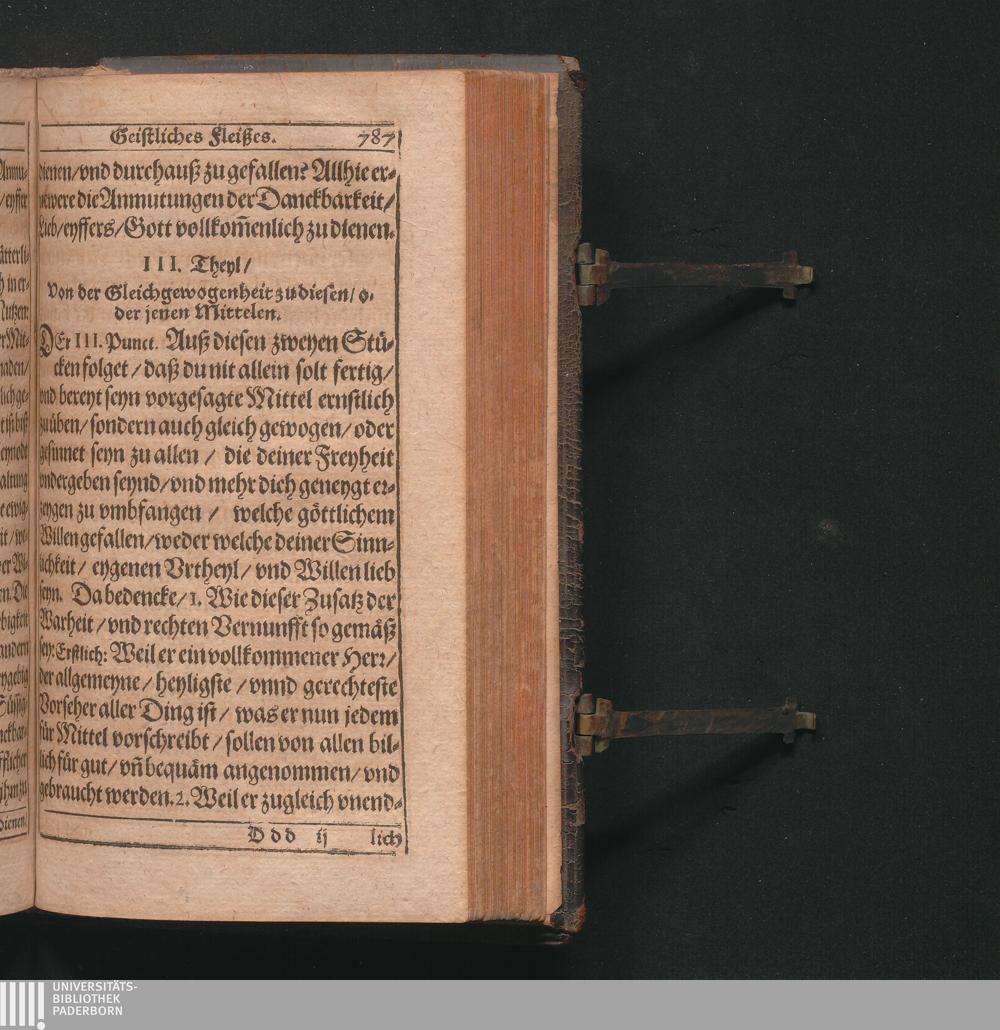 Geistliches Fleißes. 787
dienen/vnd durchauß zu gefallen? Allhie er⸗
newere die Anmutungen der Danckbarkeit/
Lieb/eyffers/Gott vollkom̃enlich zu dienen.
III. Theyl/
Von der Gleichgewogenheit zu diesen/ o⸗
der jenen Mittelen.
DEr III. Punct. Auß diesen zweyen Stü⸗
cken folget/ daß du nit allein solt fertig/
vnd bereyt seyn vorgesagte Mittel ernstlich
zuüben/ sondern auch gleich gewogen/ oder
gesinnet seyn zu allen/ die deiner Freyheit
vndergeben seynd/vnd mehr dich geneygt er⸗
zeygen zu vmbfangen/ welche göttlichem
Willen gefallen/weder welche deiner Sinn⸗
lichkeit/ eygenen Vrtheyl/ vnd Willen lieb
seyn. Da bedencke/1. Wie dieser Zusatz der
Warheit/ vnd rechten Vernunfft so gemäß
sey: Erstlich: Weil er ein vollkommener Herr/
der allgemeyne/ heyligste/ vnnd gerechteste
Vorseher aller Ding ist/ was er nun jedem
für Mittel vorschreibt/ sollen von allen bil⸗
lich für gut/ vñ bequäm angenommen/ vnd
gebraucht werden. 2. Weil er zugleich vnend⸗
Ddd ij lich
UNIVERSITÄTS-
BIBLIOTHEK
PADERBORN